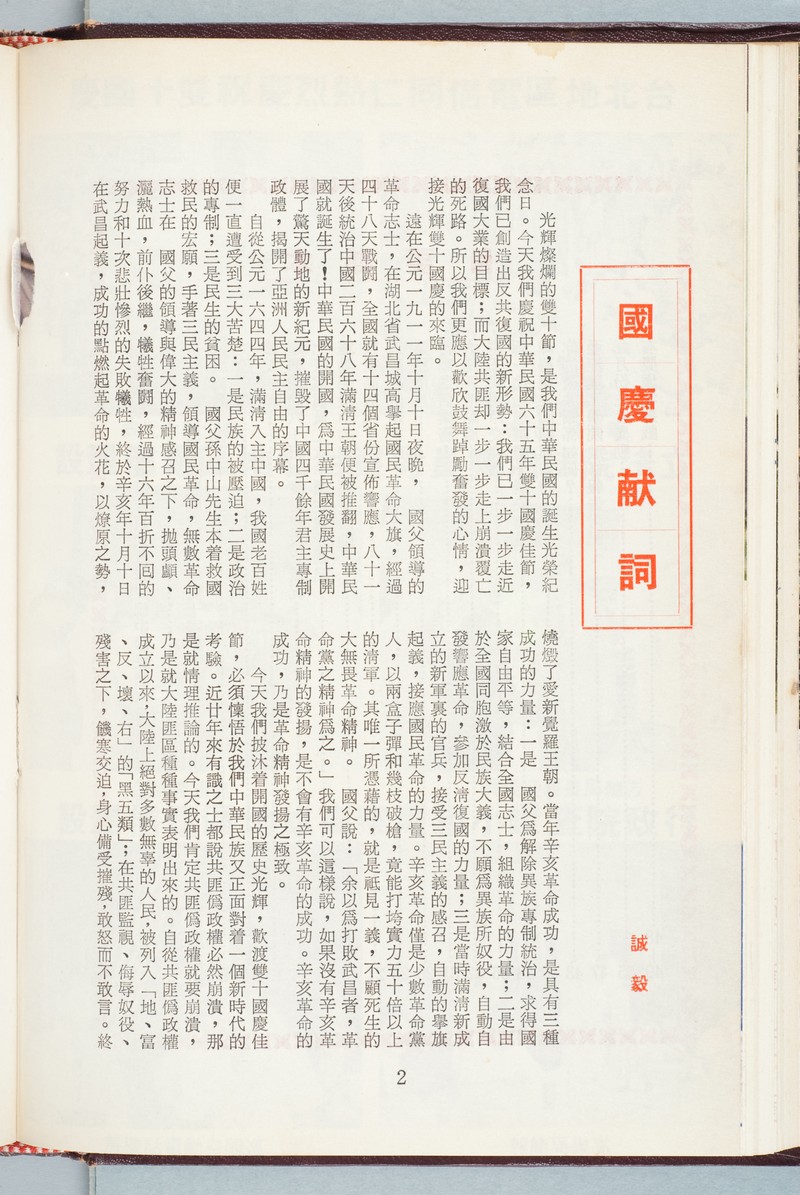 國慶献詞
誠毅
光輝燦爛的雙十節，是我們中華民國的誕生光榮紀
念日。今天我們慶祝中華民國六十五年雙十國慶佳節，
我們已創造出反共復國的新形勢：我們已一步一步走近
復國大業的目標；而大陸共匪却一步一步走上崩潰覆亡
的死路。所以我們更應以歡欣鼓舞踔勵奮發的心情，迎
接光輝雙十國慶的來臨。
遠在公元一九一一年十月十日夜晚，　國父領導的
革命志士，在湖北省武昌城高擧起國民革命大旗，經過
四十八天戰鬪，全國就有十四個省份宣佈響應，八十一
天後統治中國二百六十八年滿淸王朝便被推翻，中華民
國就誕生了！中華民國的開國，爲中華民國發展史上開
展了驚天動地的新紀元，摧毀了中國四千餘年君主專制
政體，揭開了亞洲人民民主自由的序幕。
自從公元一六四四年，滿淸入主中國，我國老百姓
便一直遭受到三大苦楚：一是民族的被壓迫；二是政治
的專制；三是民生的貧困。　國父孫中山先生本着救國
救民的宏願，手著三民主義，領導國民革命，無數革命
志士在　國父的領導與偉大的精神感召之下，拋頭顱、
灑熱血，前仆後繼，犧牲奮鬪，經過十六年百折不回的
努力和十次悲壯慘烈的失敗犧牲，終於辛亥年十月十日
在武昌起義，成功的點燃起革命的火花，以燎原之勢，
燒燬了愛新覺羅王朝。當年辛亥革命成功，是具有三種
成功的力量：一是　國父爲解除異族專制統治，求得國
家自由平等，結合全國志士，組織革命的力量；二是由
於全國同胞激於民族大義，不願爲異族所奴役，自動自
發響應革命，參加反淸復國的力量；三是當時滿淸新成
立的新軍裏的官兵，接受三民主義的感召，自動的擧旗
起義，接應國民革命的力量。辛亥革命僅是少數革命黨
人，以兩盒子彈和幾枝破槍，竟能打垮實力五十倍以上
的淸軍。其唯一所憑藉的，就是祗見一義，不顧死生的
大無畏革命精神。　國父說：「余以爲打敗武昌者，革
命黨之精神爲之。」我們可以這樣說，如果沒有辛亥革
命精神的發揚，是不會有辛亥革命的成功。辛亥革命的
成功，乃是革命精神發揚之極致。
今天我們披沐着開國的歷史光輝，歡渡雙十國慶佳
節，必須懍悟於我們中華民族又正面對着一個新時代的
考驗。近廿年來有識之士都說共匪僞政權必然崩潰，那
是就情理推論的。今天我們肯定共匪僞政權就要崩潰，
乃是就大陸匪區種種事實表明出來的。自從共匪僞政權
成立以來，大陸上絕對多數無辜的人民，被列入「地、富
、反、壞、右」的「黑五類」；在共匪監視、侮辱奴役、
殘害之下，饑寒交迫，身心備受摧殘，敢怒而不敢言。終
2